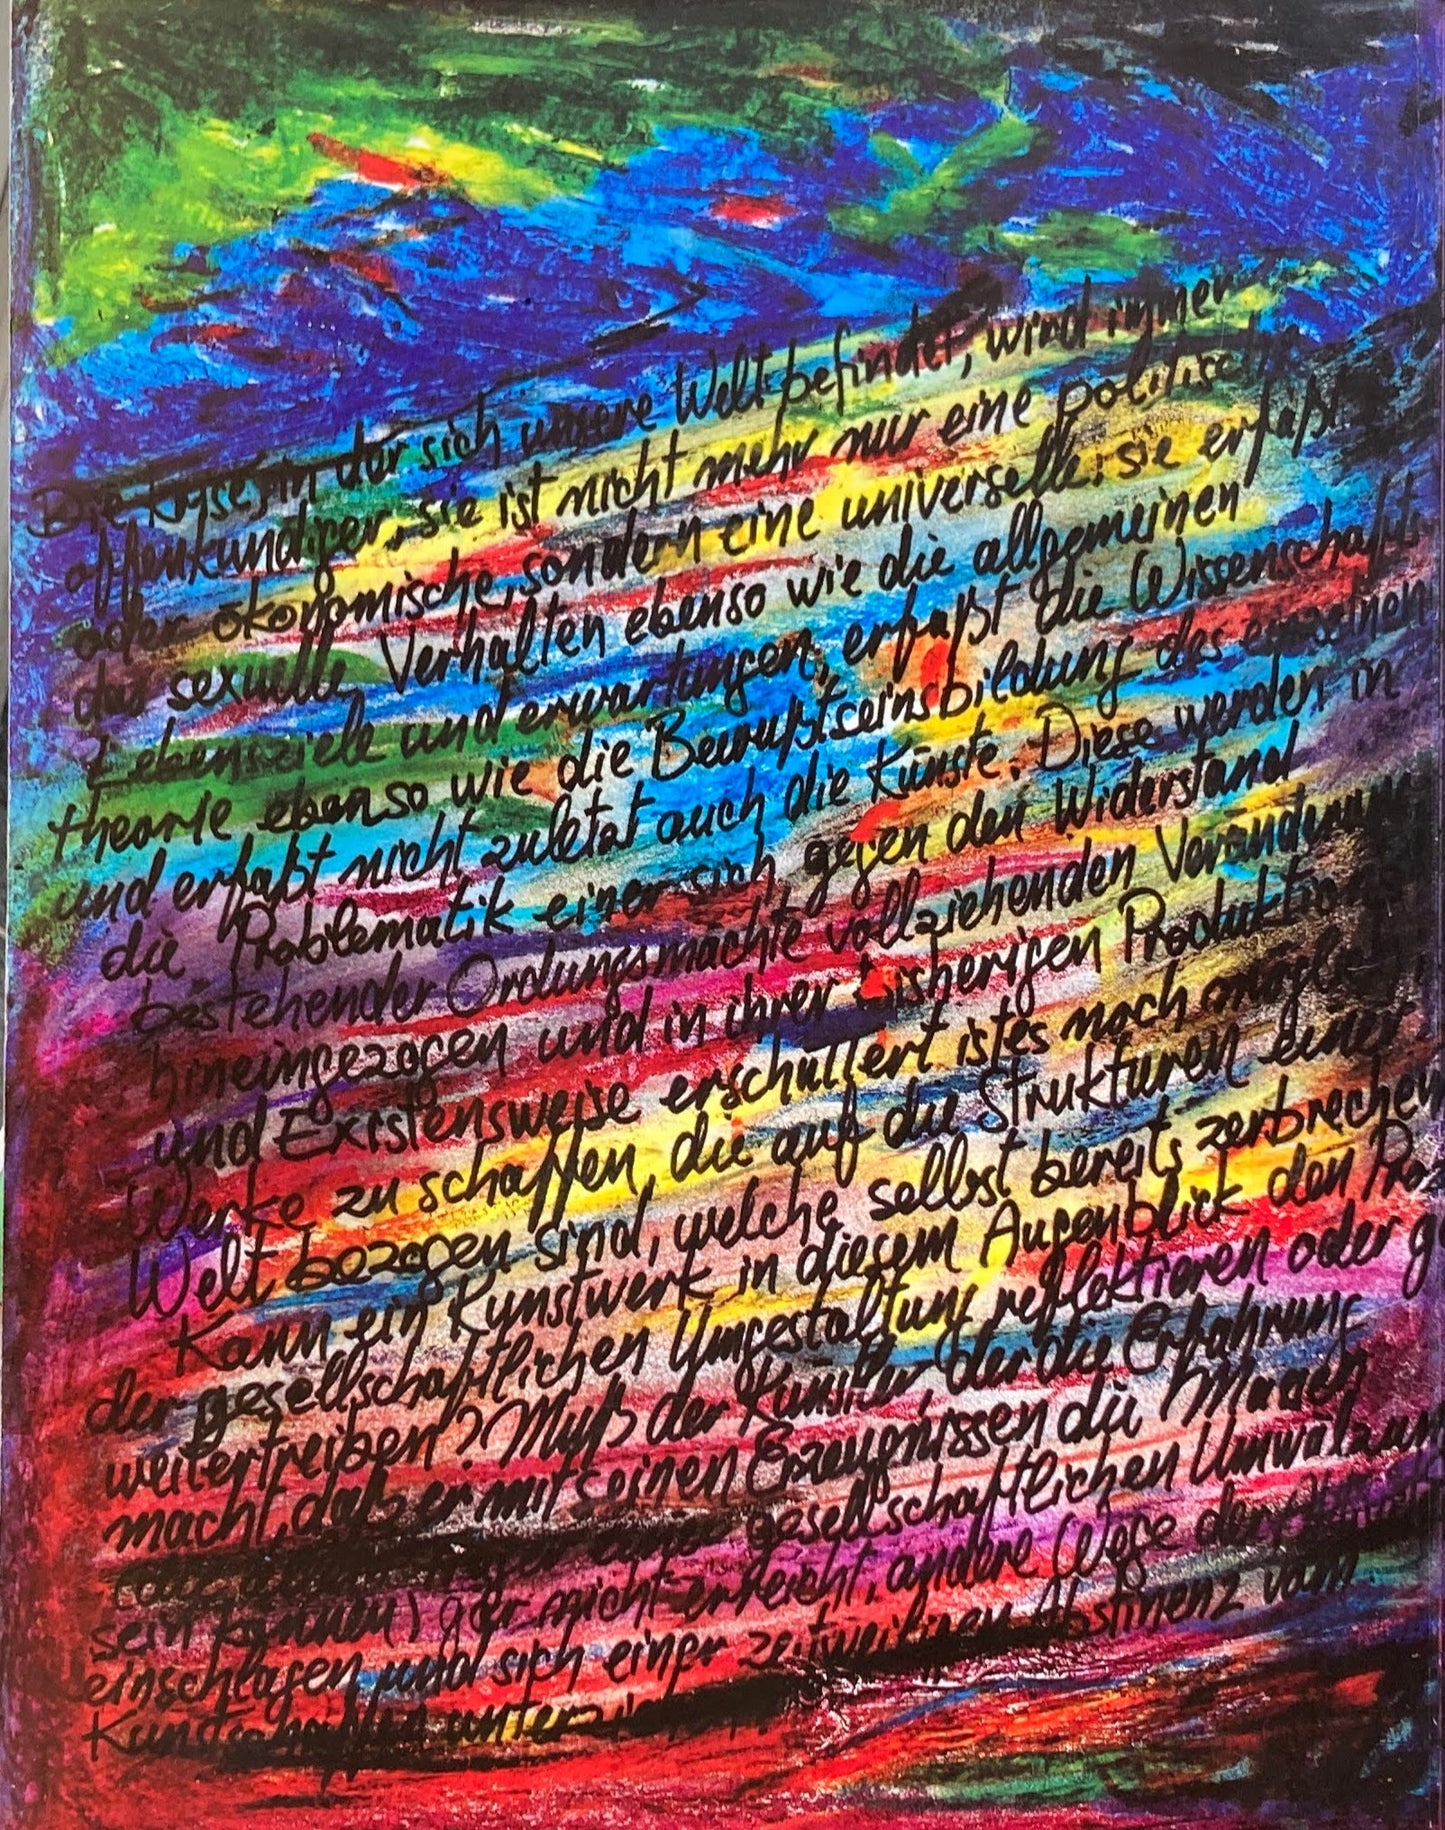 Die Kryse, in der sich unsere Welt befindet, wird immer
offenkundiger, sie ist nicht mehr nur eine politische
oder ökonomische, sondern eine universelle: sie erfaßt
das sexuelle Verhalten ebenso wie die allgemeinen
Lebensziele und erwartungen, erfaßt die Wissenschafts
theorie ebenso wie die Bewußtseinsbildung des einzelnen
und erfaßt nicht zuletzt auch die Künste. Diese werden in
die Problematik einer sich gegen den Widerstand
bestehender Ordungsmächte vollziehenden Veränderung
hineingezogen und in ihrer bisherigen Produktions
und Existensweise erschüttert ist es noch möglich,
Werke zu schaffen, die auf die Strukturen einer
Welt bezogen sind, welche selbst bereits zerbrechen
Kann ein Kunstwerk in diesem Augenblick den Proz
der gesellschaftlichen Umgestaltung reflektieren oder g
weitertreiben? Muß der Künstler, der die Erfahrung
macht, daß er mit seinen Erzeugnissen die Masse
gesellschaftlichen Umwälzung
sein können) gar nicht erreicht, andere Wege der
einschlagen und sich einer zeitweiligen Abstinenz vom
Kunstschaffen unterziehen